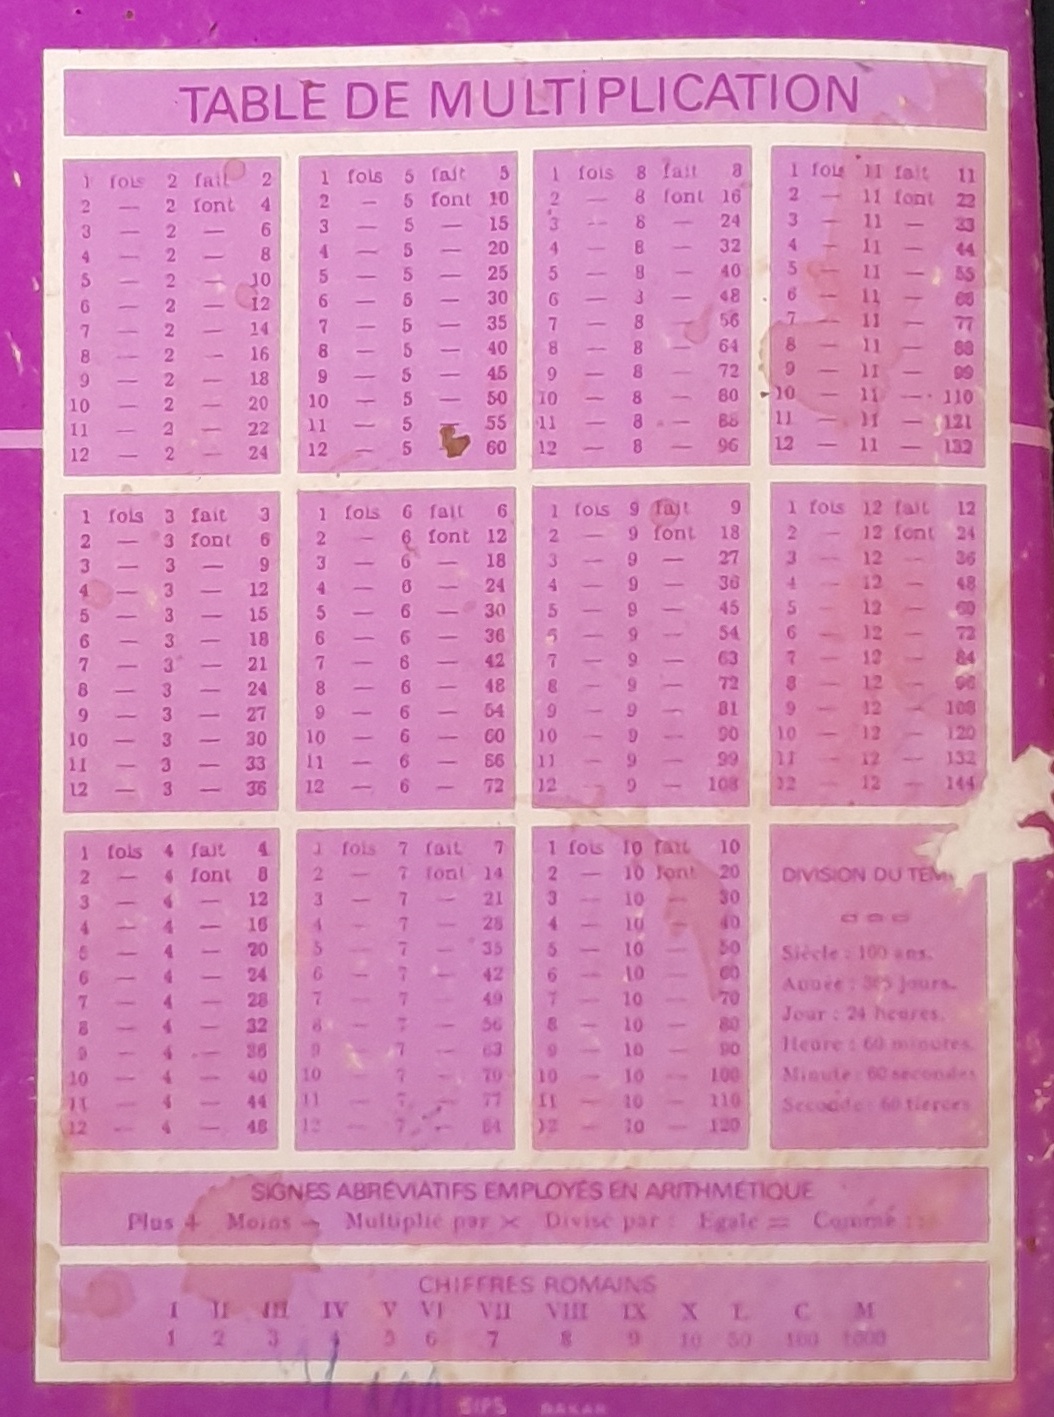 TABLE DE MULTIPLICATION
1 fois 2 fait 2
2 — 2 font 4
3 — 2 — 6
4 — 2 — 8
5 — 2 — 10
6 — 2 — 12
7 — 2 — 14
8 — 2 — 16
9 — 2 — 18
10 — 2 — 20
11 — 2 — 22
12 — 2 — 24
1 fois 5 fait 5
2 — 5 font 10
3 — 5 — 15
4 — 5 — 20
5 — 5 — 25
6 — 5 — 30
7 — 5 — 35
8 — 5 — 40
9 — 5 — 45
10 — 5 — 50
11 — 5 — 55
12 — 5 60
1 fois 8 fait 8
2 — 8 font 16
3 — 8 — 24
4 — 8 — 32
5 — 8 — 40
6 — 8 — 48
7 — 8 — 56
8 — 8 — 64
9 — 8 — 72
10 — 8 — 80
11 — 8 — 88
12 — 8 — 96
1 fois 11 fait 11
2 — 11 font 22
3 — 11 — 33
4 — 11 — 44
5 — 11 — 55
6 — 11 — 66
7 — 11 — 77
8 — 11 — 88
9 — 11 — 99
10 — 11 — 110
11 — 11 — 121
12 — 11 — 132
1 fois 3 fait 3
2 — 3 font 6
3 — 3 — 9
4 — 3 — 12
5 — 3 — 15
6 — 3 — 18
7 — 3 — 21
8 — 3 — 24
9 — 3 — 27
10 — 3 — 30
11 — 3 — 33
12 — 3 — 36
1 fois 6 fait 6
2 — 6 font 12
3 — 6 — 18
4 — 6 — 24
5 — 6 — 30
6 — 6 — 36
7 — 6 — 42
8 — 6 — 48
9 — 6 — 54
10 — 6 — 60
11 — 6 — 66
12 — 6 — 72
1 fois 9 fait 9
2 — 9 font 18
3 — 9 — 27
4 — 9 — 36
5 — 9 — 45
6 — 9 — 54
7 — 9 — 63
8 — 9 — 72
9 — 9 — 81
10 — 9 — 90
11 — 9 — 99
12 — 9 — 108
1 fois 12 fait 12
2 — 12 font 24
3 — 12 — 36
4 — 12 — 48
5 — 12 — 60
6 — 12 — 72
7 — 12 — 84
8 — 12 — 96
9 — 12 — 108
10 — 12 — 120
11 — 12 — 132
12 — 12 — 144
1 fois 4 fait 4
2 — 4 font 8
3 — 4 — 12
4 — 4 — 16
5 — 4 — 20
6 — 4 — 24
7 — 4 — 28
8 — 4 — 32
9 — 4 — 36
10 — 4 — 40
11 — 4 — 44
12 — 4 — 48
1 fois 7 fait 7
2 — 7 font 14
3 — 7 — 21
4 — 7 — 28
5 — 7 — 35
6 — 7 — 42
7 — 7 — 49
8 — 7 — 56
9 — 7 — 63
10 — 7 — 70
11 — 7 — 77
12 — 7 — 84
1 fois 10 fait 10
2 — 10 font 20
3 — 10 — 30
4 — 10 — 40
5 — 10 — 50
6 — 10 — 60
7 — 10 — 70
8 — 10 — 80
9 — 10 — 90
10 — 10 — 100
11 — 10 — 110
12 — 10 — 120
DIVISION DU TEM
Siècle : 100 ans.
Année : 365 jours.
Jour : 24 heures.
Heure : 60 minutes.
Minute : 60 secondes
Seconde : 60 tierces
SIGNES ABRÉVIATIFS EMPLOYÉS EN ARITHMÉTIQUE
Plus + Moins — Multiplié par × Divisé par : Egale = Comme ::
CHIFFRES ROMAINS
I II III IV V VI VII VIII IX X L C M
1 2 3 4 5 6 7 8 9 10 50 100 1000
SIPS DAKAR